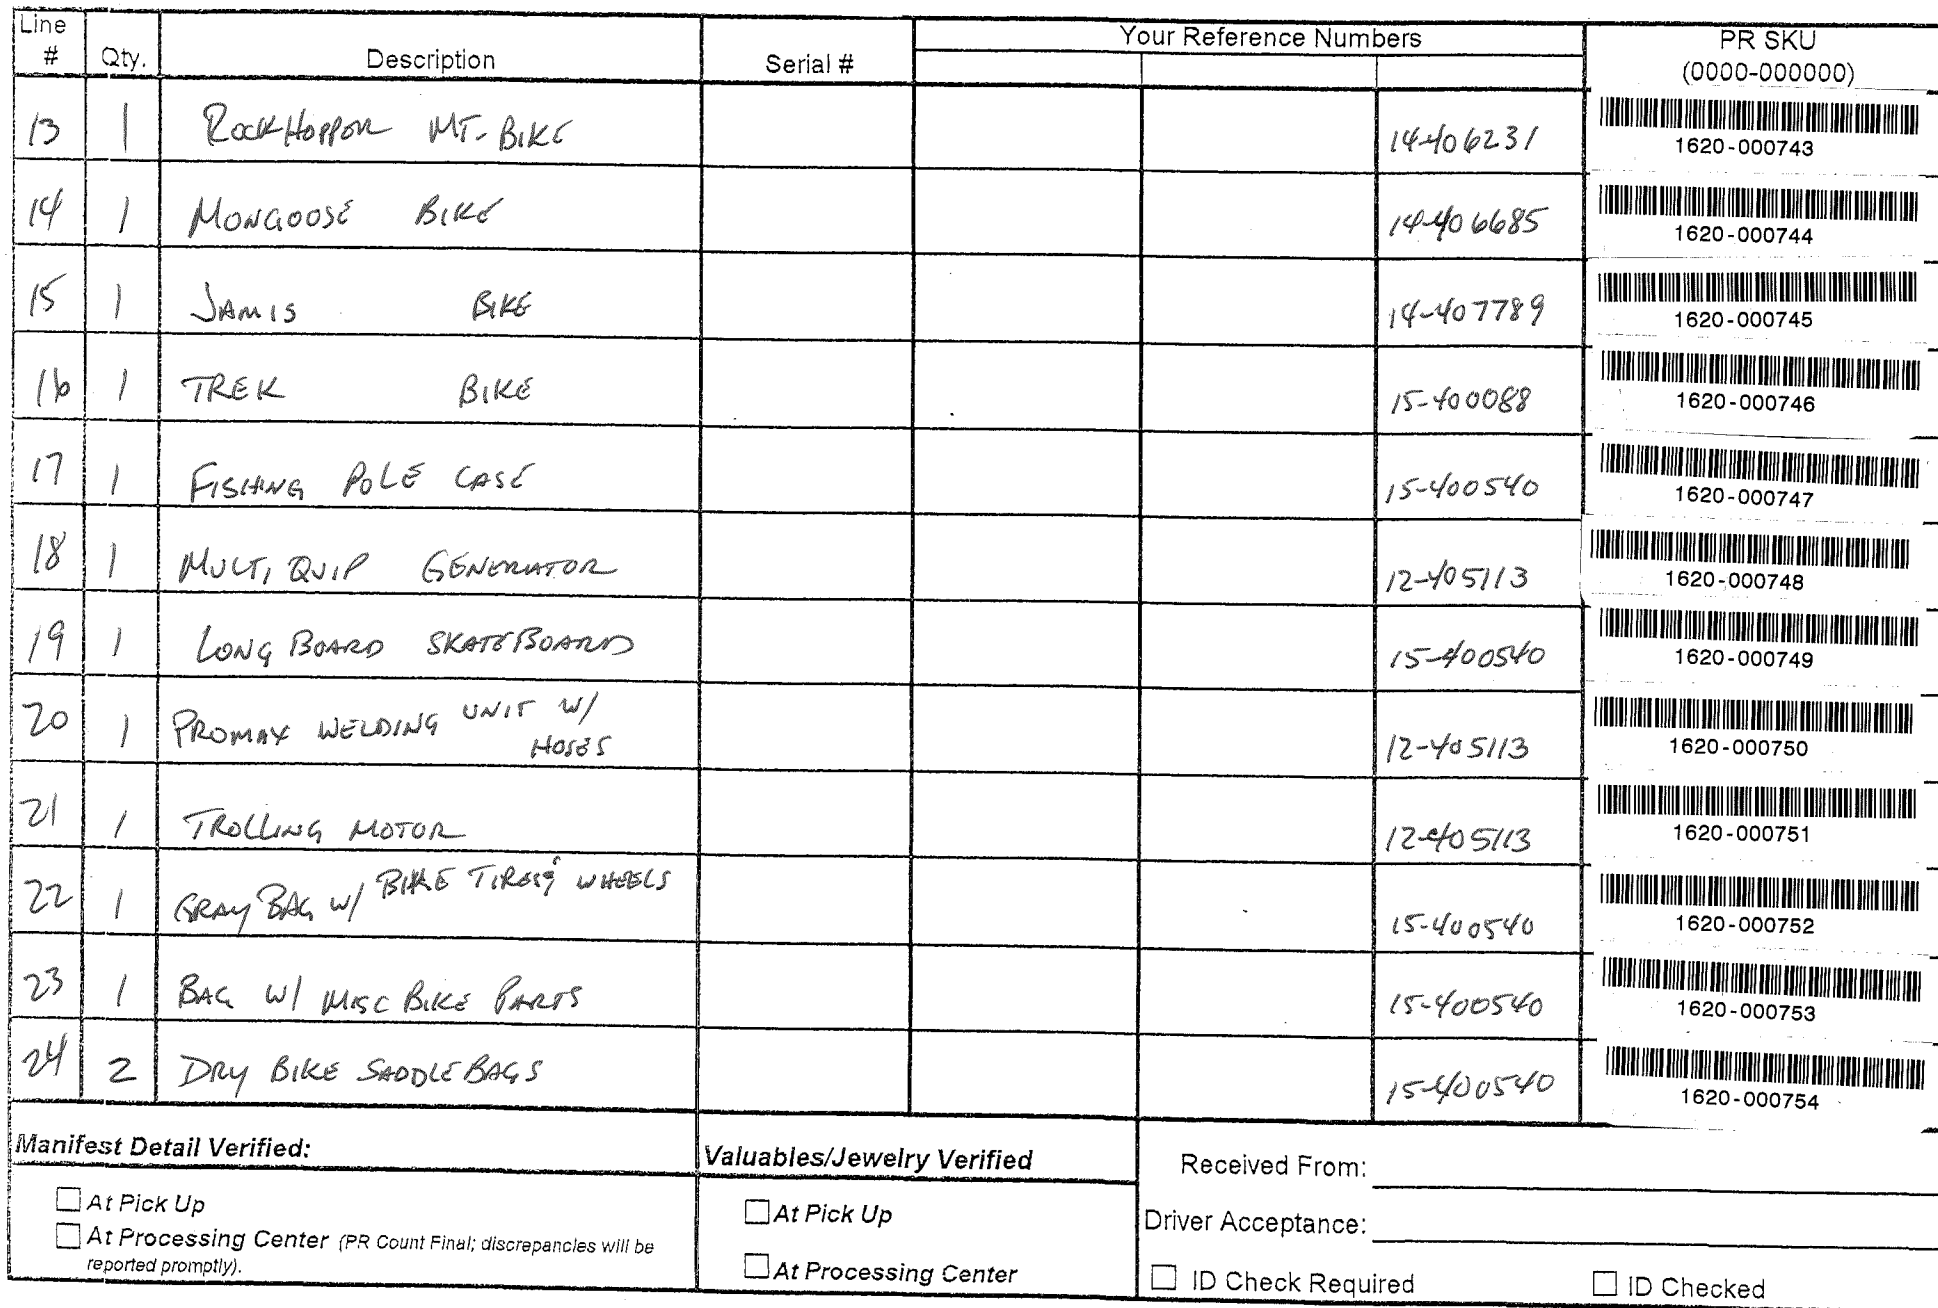 Line # Qty. Description Serial # Your Reference Numbers PR SKU (0000-000000)
13 1 ROCKHOPPOR MT-BIKE 14-406231 1620-000743
14 1 MONGOOSE BIKE 14-406685 1620-000744
15 1 JAMIS BIKE 14-407789 1620-000745
16 1 TREK BIKE 15-400088 1620-000746
17 1 FISHING POLE CASE 15-400540 1620-000747
18 1 MULTI QUIP GENERATOR 12-405113 1620-000748
19 1 LONG BOARD SKATEBOARD 15-400540 1620-000749
20 1 PROMAX WELDING UNIT W/ HOSES 12-405113 1620-000750
21 1 TROLLING MOTOR 12-405113 1620-000751
22 1 GRAY BAG W/ BIKE TIRES & WHEELS 15-400540 1620-000752
23 1 BAG W/ MISC BIKE PARTS 15-400540 1620-000753
24 2 DRY BIKE SADDLE BAGS 15-400540 1620-000754
Manifest Detail Verified:
At Pick Up
At Processing Center (PR Count Final; discrepancies will be
reported promptly).
Valuables/Jewelry Verified
At Pick Up
At Processing Center
Received From:
Driver Acceptance:
ID Check Required ID Checked